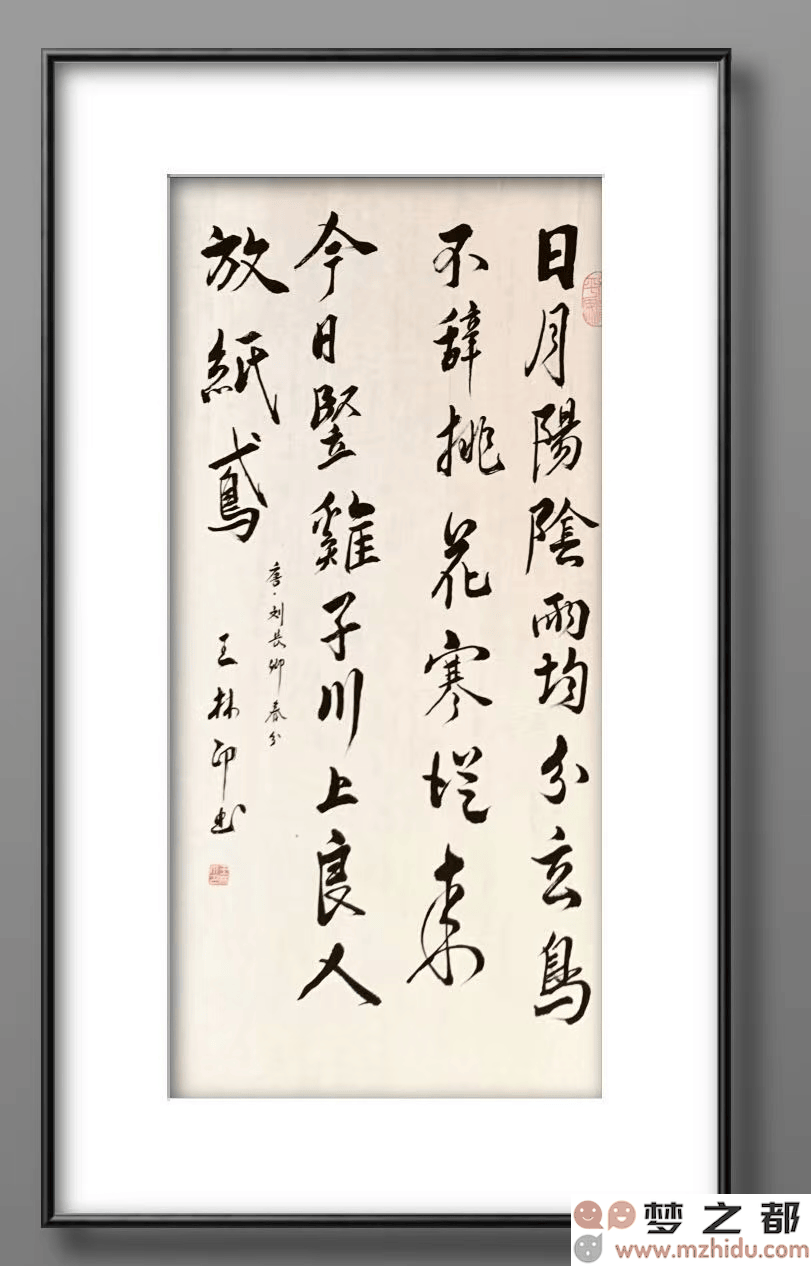 日月陽陰兩均分玄鳥
不辞桃花寒從来
今日竪雞子川上良人
放紙鳶
唐·刘長卿春分
王林印书
梦之都
www.mzhidu.com